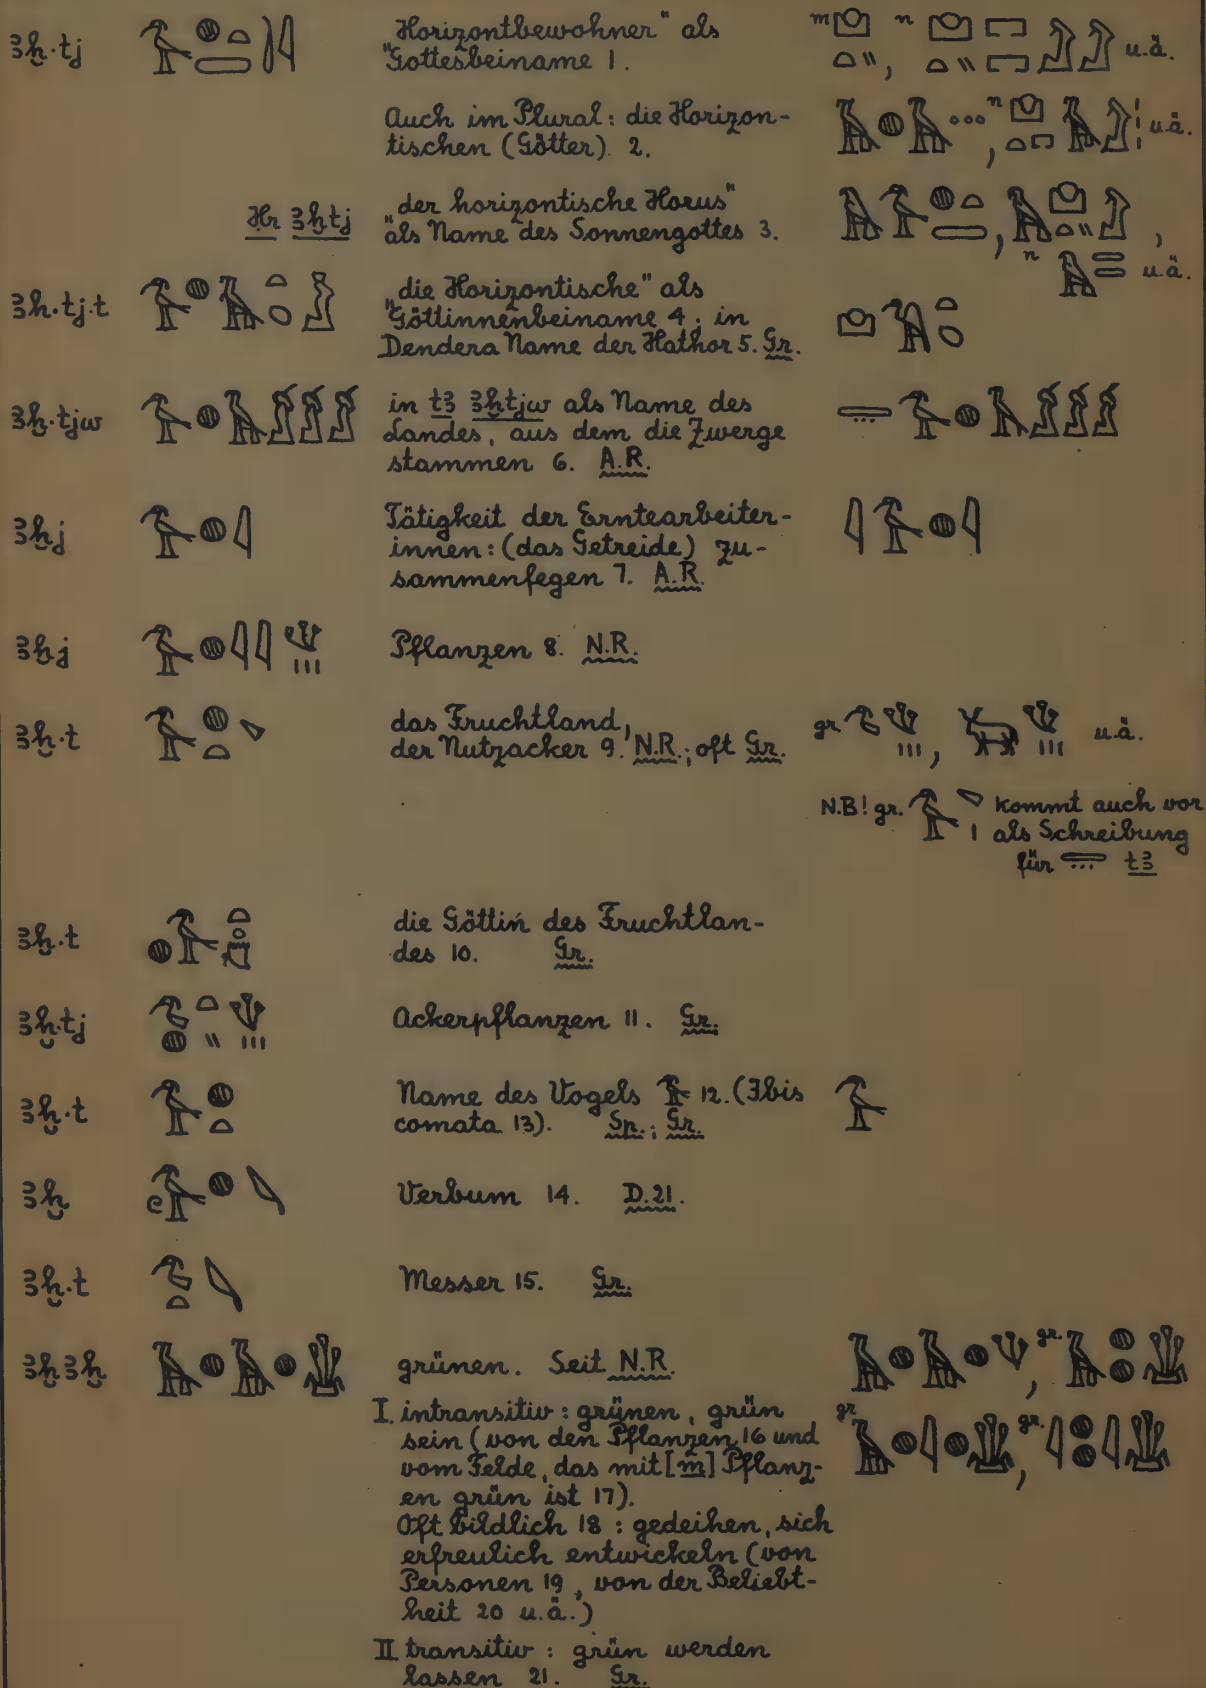 ꜣḫ·tj „Horizontbewohner“ als m n
Gottesbeiname 1. , u.ä.
Auch im Plural: die Horizon- n
tischen (Götter) 2. , u.ä.
Ḥr ꜣḫtj „der horizontische Horus“
als Name des Sonnengottes 3. , ,
n u.ä.
ꜣḫ·tj.t „die Horizontische“ als
Göttinnenbeiname 4; in
Dendera Name der Hathor 5. Gr.
ꜣḫ·tjw in tꜣ ꜣḫtjw als Name des
Landes, aus dem die Zwerge
stammen 6. A.R.
ꜣḫj Tätigkeit der Erntearbeiter-
innen: (das Getreide) zu-
sammenfegen 7. A.R.
ꜣḫj Pflanzen 8. N.R.
ꜣḫ·t das Fruchtland, gr. , u.ä.
der Nutzacker 9. N.R.; oft Gr.
N.B! gr. kommt auch vor
als Schreibung
für tꜣ
ꜣḫ·t die Göttin des Fruchtlan-
des 10. Gr.
ꜣḫ·tj Ackerpflanzen 11. Gr.
ꜣḫ·t Name des Vogels 12. (Ibis
comata 13). Sp.; Gr.
ꜣḫ Verbum 14. D.21.
ꜣḫ·t Messer 15. Gr.
ꜣḫꜣḫ grünen. Seit N.R. , gr.
I. intransitiv: grünen, grün gr. , gr.
sein (von den Pflanzen 16 und
vom Felde, das mit [m] Pflanz-
en grün ist 17).
Oft bildlich 18: gedeihen, sich
erfreulich entwickeln (von
Personen 19, von der Beliebt-
heit 20 u.ä.)
II. transitiv: grün werden
lassen 21. Gr.